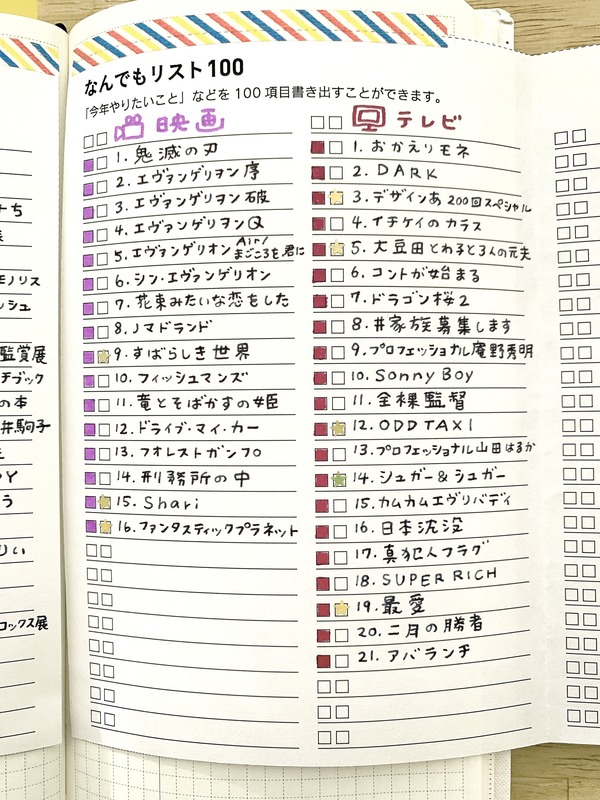 なんでもリスト100
「今年やりたいこと」などを 100 項目書き出すことができます。
映画
1. 鬼滅の刃
2. エヴァンゲリヲン序
3. エヴァンゲリヲン破
4. エヴァンゲリヲンQ
5. エヴァンゲリオン Air/まごころを君に
6. シン・エヴァンゲリオン
7. 花束みたいな恋をした
8. ノマドランド
9. すばらしき世界
10. フィッシュマンズ
11. 竜とそばかすの姫
12. ドライブ・マイ・カー
13. フォレストガンプ
14. 刑務所の中
15. Shari
16. ファンタスティックプラネット
テレビ
1. おかえりモネ
2. DARK
3. デザインあ 200回スペシャル
4. イチケイのカラス
5. 大豆田とわ子と3人の元夫
6. コントが始まる
7. ドラゴン桜2
8. #家族募集します
9. プロフェッショナル庵野秀明
10. Sonny Boy
11. 全裸監督
12. ODD TAXI
13. プロフェッショナル山田はるか
14. シュガー&シュガー
15. カムカムエヴリバディ
16. 日本沈没
17. 真犯人フラグ
18. SUPER RICH
19. 最愛
20. 二月の勝者
21. アバランチ
モノリス
ッシュ
監賞展
チブック
の本
井駒子
ロックス展